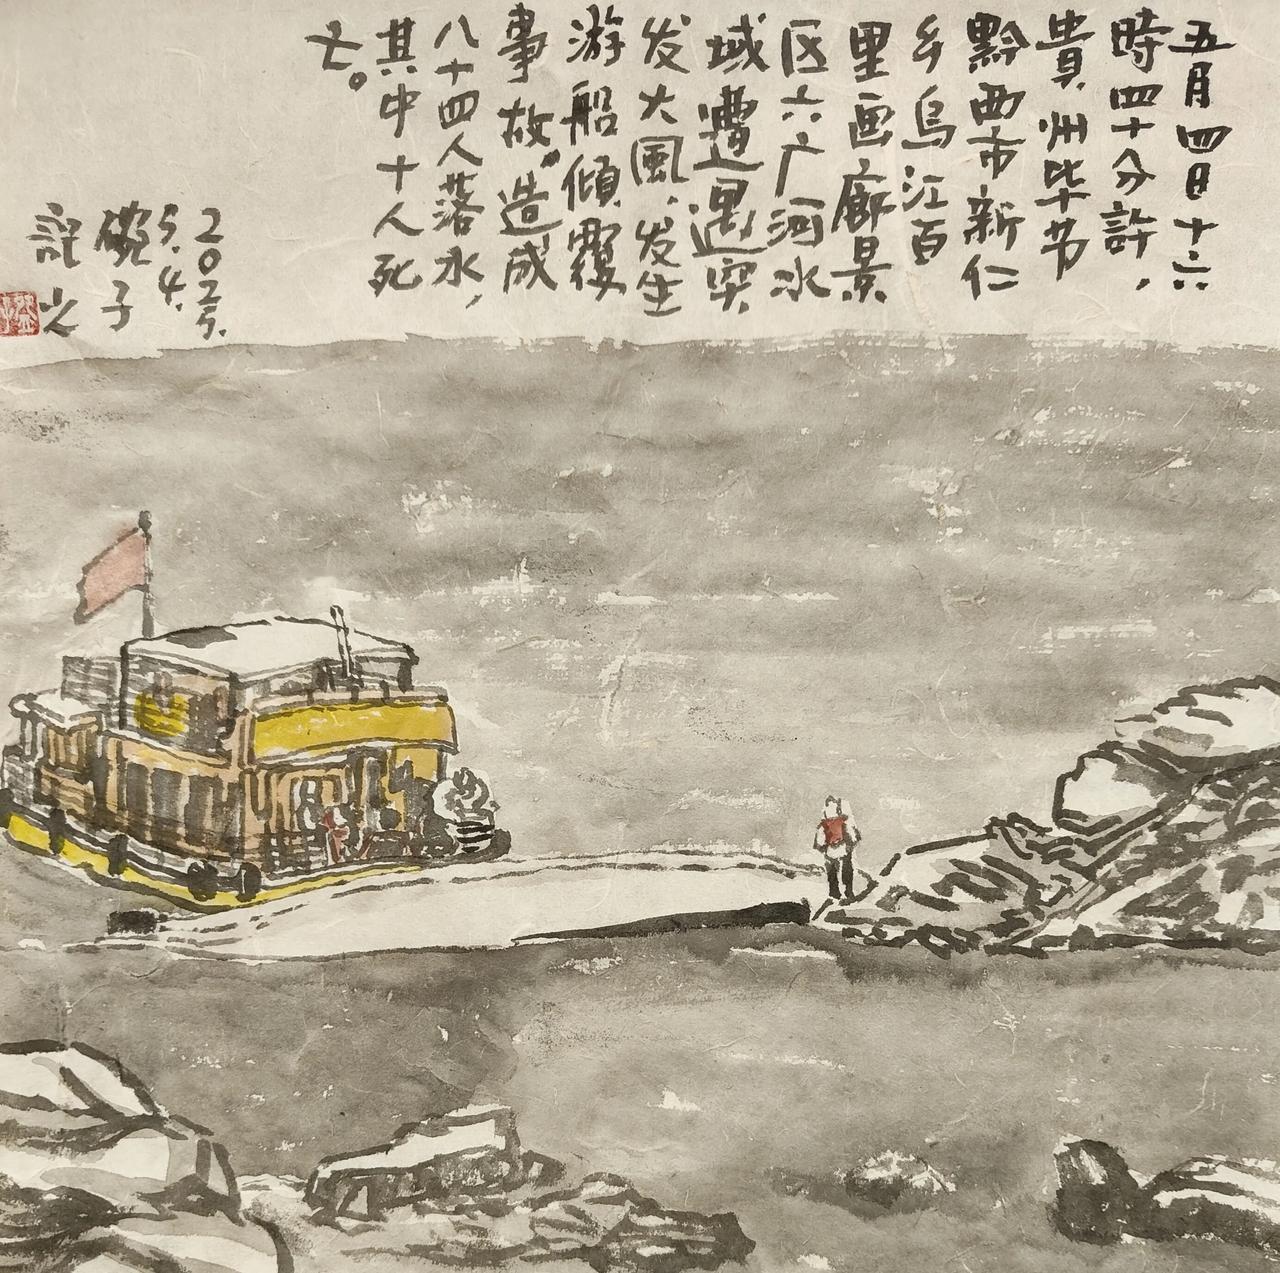 五月四日十六
時四十分許，
貴州毕节
黔西市新仁
乡乌江百
里画廊景
区六广河水
域遭遇突
发大風，发生
游船傾覆
事故。造成
八十四人落水，
其中十人死
亡。
2025.
5.4.
子
記